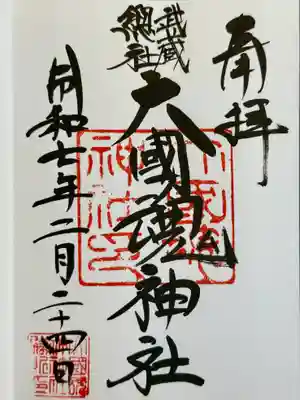 奉拝
武蔵
總社
大國魂神社
令和七年二月二十四日